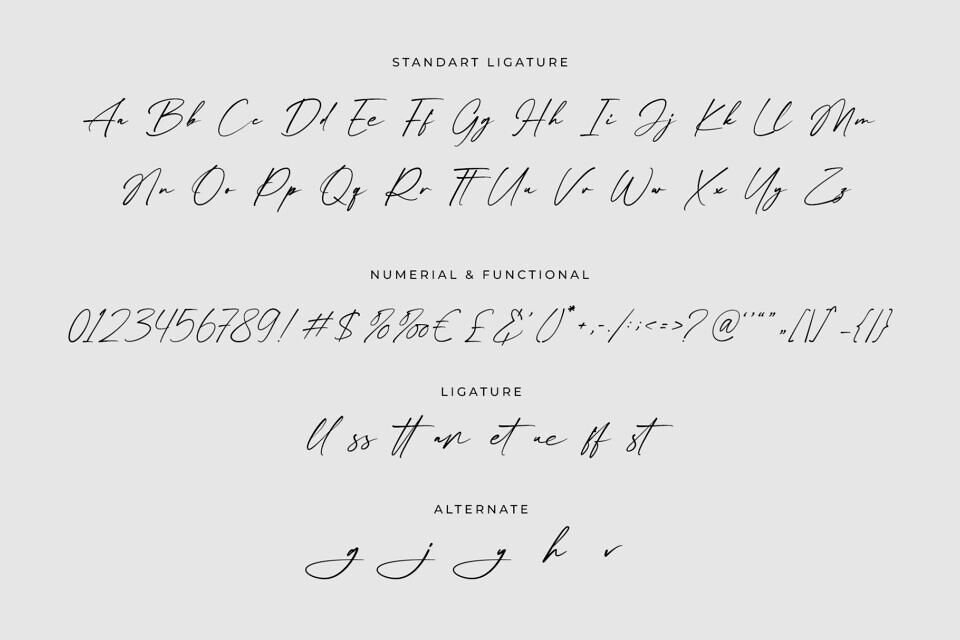 STANDART LIGATURE
Aa Bb Cc Dd Ee Ff Gg Hh Ii Jj Kk Ll Mm
Nn Oo Pp Qq Rr Tt Uu Vv Ww Xx Yy Zz
NUMERIAL & FUNCTIONAL
0123456789! #$ %‰€ £ &'()*+,-./:;<=>? @‘’“”„[\]^_{|}
LIGATURE
ll ss tt an et ue ff st
ALTERNATE
g j y h v